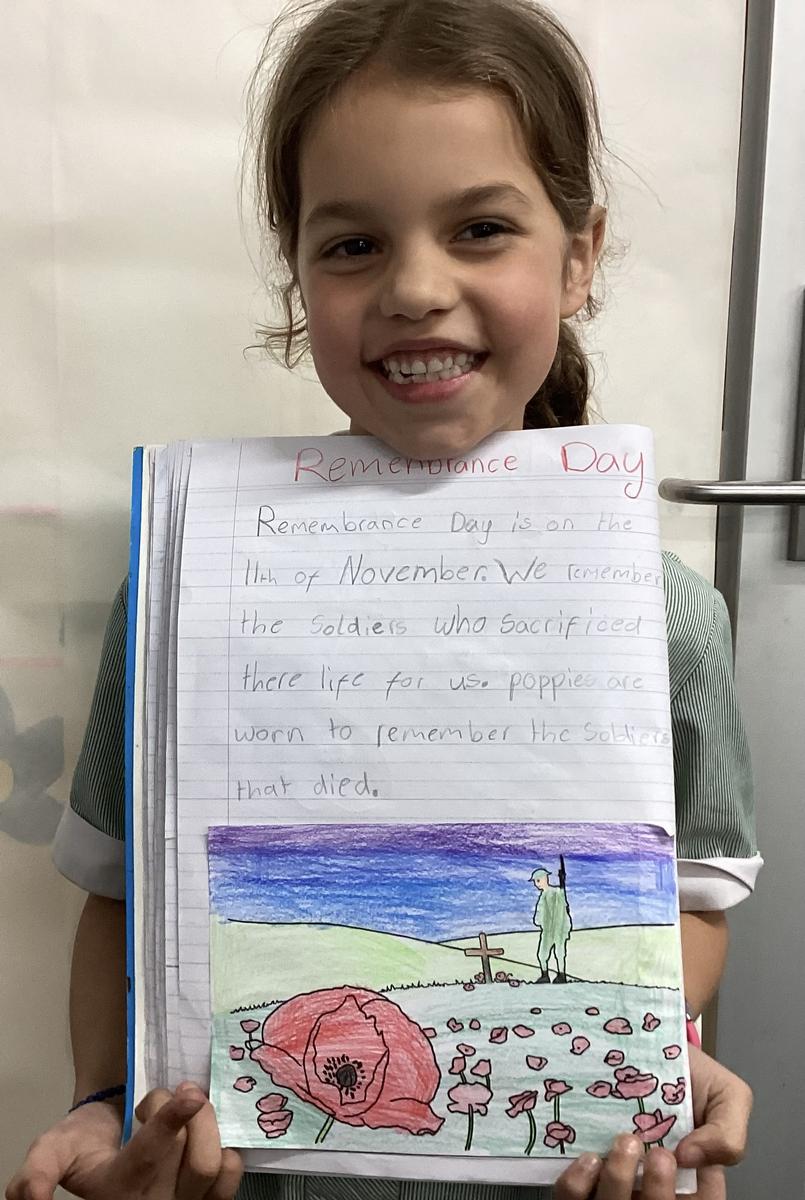 Remembrance Day
Remembrance Day is on the
11th of November. We remember
the Soldiers who sacrificed
there life for us. poppies are
worn to remember the Soldiers
that died.